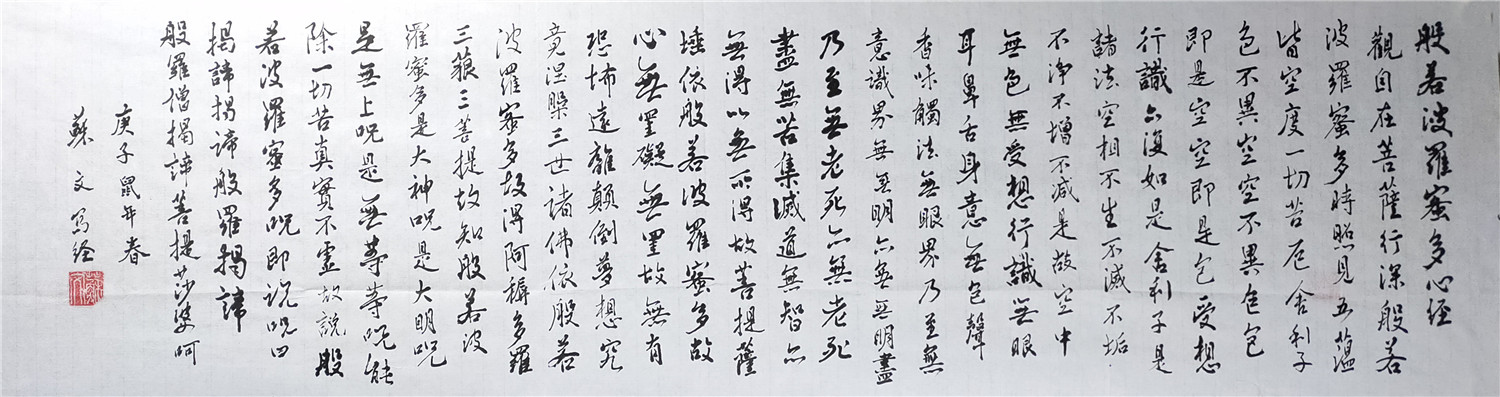 般若波羅蜜多心经
觀自在菩薩行深般若
波羅蜜多時照見五蕴
皆空度一切苦厄舍利子
色不異空空不異色色
即是空空即是色受想
行識亦復如是舍利子是
諸法空相不生不滅不垢
不淨不增不減是故空中
無色無受想行識無眼
耳鼻舌身意無色聲
香味觸法無眼界乃至無
意識界無無明亦無無明盡
乃至無老死亦無老死
盡無苦集滅道無智亦
無得以無所得故菩提薩
埵依般若波羅蜜多故
心無罣礙無罣故無有
恐怖遠離顛倒夢想究
竟涅槃三世諸佛依般若
波羅蜜多故得阿耨多羅
三藐三菩提故知般若波
羅蜜多是大神咒是大明咒
是無上咒是無等等咒能
除一切苦真實不虛故說般
若波羅蜜多咒即说咒曰
揭諦揭諦般羅揭諦
般羅僧揭諦菩提莎婆呵
庚子鼠年春
蘇文写经